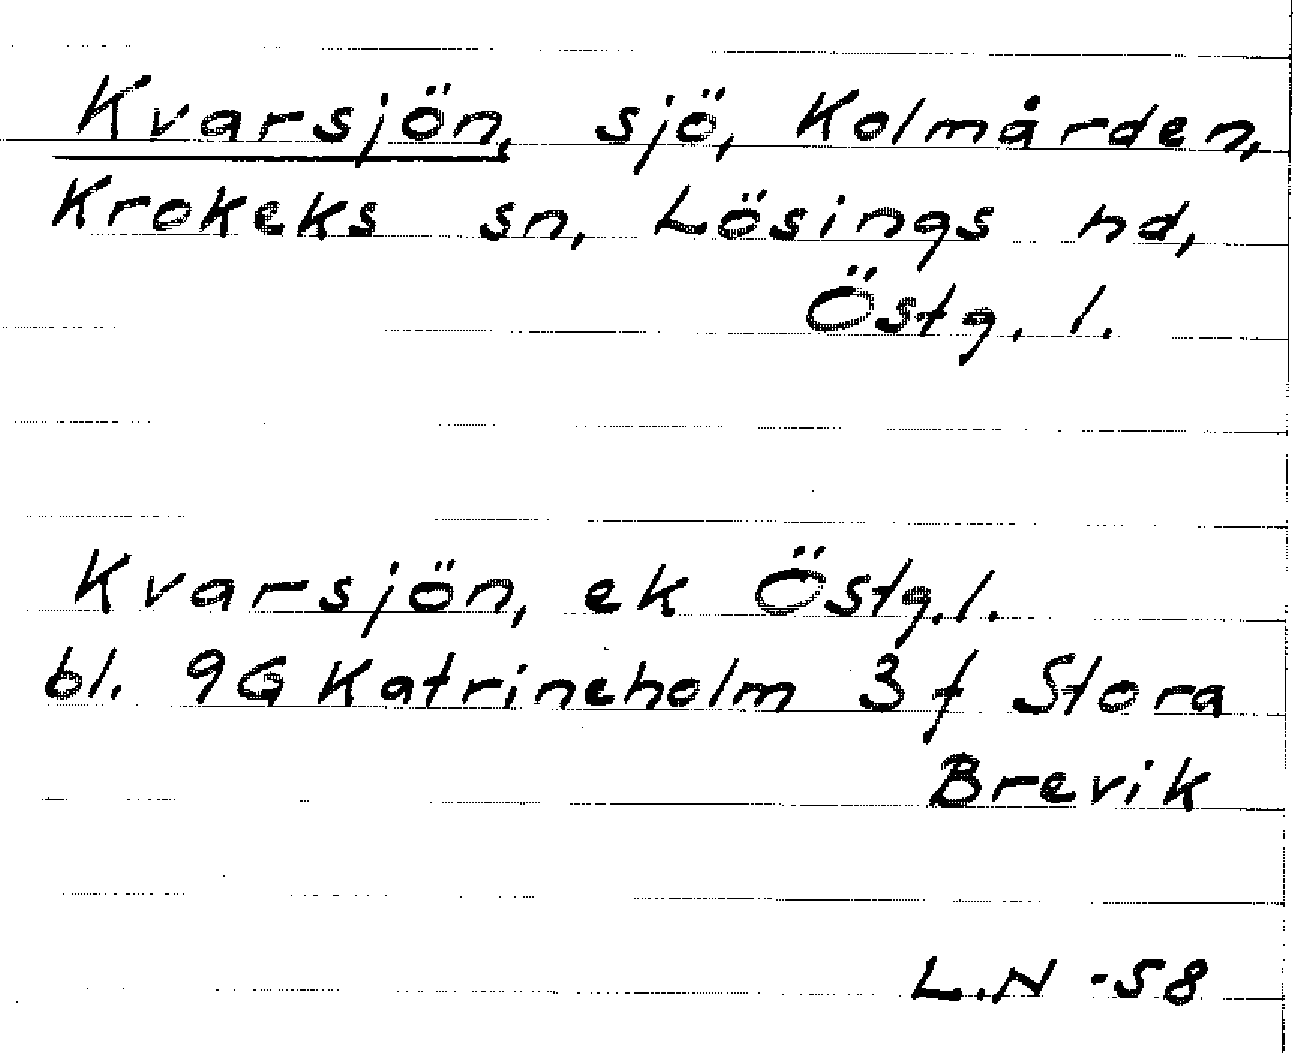 Kvarsjön, sjö, Kolmården,
Krokeks sn, Lösings hd,
Östg. l.
Kvarsjön, ek Östg. l.
bl. 9G Katrineholm 3 f Stora
Brevik
L.N -58